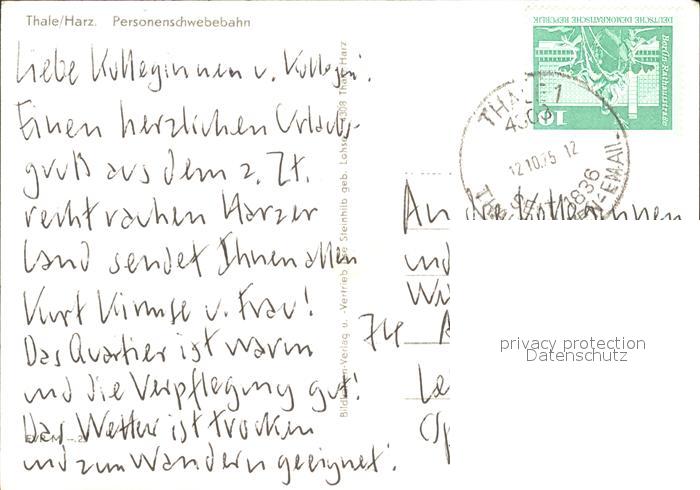 Thale/Harz. Personenschwebebahn
Liebe Kolleginnen u. Kollegen!
Einen herzlichen Urlaubs-
gruß aus dem z. Zt.
recht rauhen Harzer
Land sendet Ihnen allen
Kurt Kirmse u. Frau!
Das Quartier ist warm
und die Verpflegung gut!
Das Wetter ist trocken
und zum Wandern geeignet!
Bild und -Verlag u. -Vertrieb Steinhilb geb. Lohse 4308 Thale Harz
DEUTSCHE DEMOKRATISCHE REPUBLIK
Berlin-Rathausstraße
10
THALE 1
4308
12.10.75 12
SEIT 1836
N-EMAIL
An die Kolleginnen
und
Wi
74 A
Le
privacy protection
Datenschutz